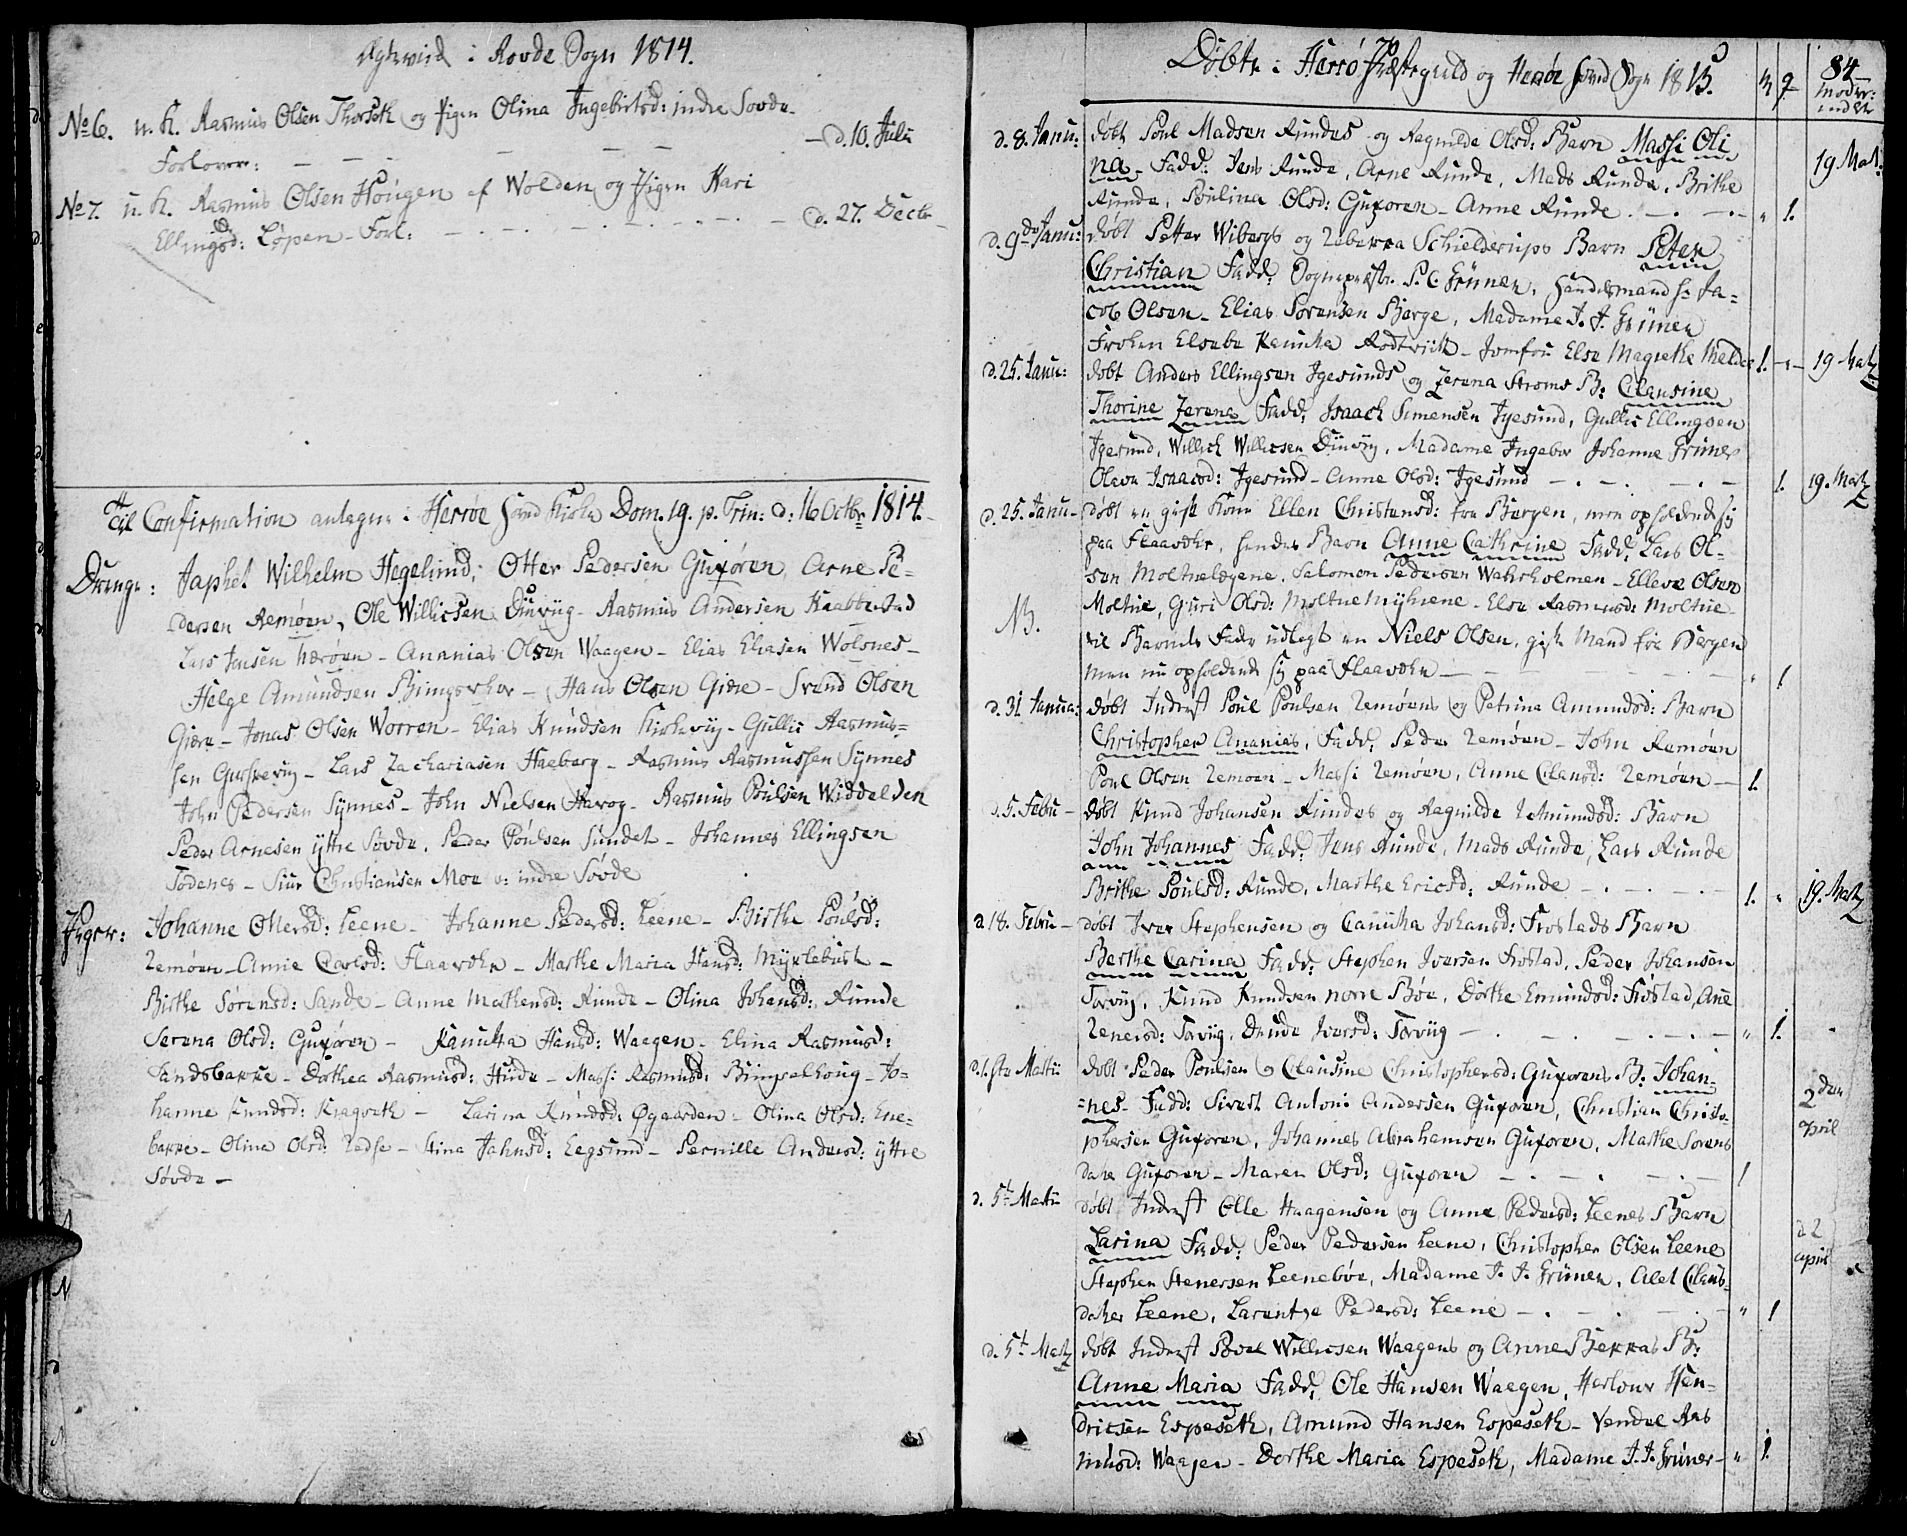 Ægteviid i Rovde Sogn 1814.
No 6. u. K. Rasmus Olsen Thorseth og Pigen Olina Ingebrtsd: indre Sovde
— d. 10. Juli
Forlovere: — — — — — —
No 7. u. K. Rasmus Olsen Hougen af Wolden og Pigen Kari
Ellingsd: Løpen – Forl: — . — . — . — d. 27. Decbr
Til Confirmation antagne i Herrøe Hoved Kirke Dom. 19. p. Trin: d: 16 Octbr 1814.
Drenge: Japhet Wilhelm Hegelund, Otter Pedersen Guxøren, Arne Pe-
dersen Remøen, Ole Willicsen Diuviig – Rasmus Andersen Kaabbestad
Lars Jensen Nærøen – Ananias Olsen Waagen – Elias Eliasen Wolsnes –
Helge Amundsen – Hans Olsen Giøre – Svend Olsen
Giøre – Jonas Olsen Worren – Elias Knudsen Kirkeviig – Gullic Rasmus-
sen Gurskeviig – Lars Zachariasen Haeberg – Rasmus Rasmussen Synnes
John Pedersen Synnes – John Nielsen Havog – Rasmus Poulsen Widdelden
Peder Arnesen ÿttre Søvde, Peder Poulsen Sundet – Johannes Ellingsen
Todenes – Siur Christiansen Moe v: indre Søvde
Piger: Johanne Ottersd: Leene – Johanne Pedersd: Leene – Birthe Poulsd:
Remøen – Anne Carlsd: Flaavær – Marthe Maria Hansd: Myklebust –
Birthe Sørensd: Sande – Anne Mathensd: Runde – Olina Johansd: Runde
Serena Olsd: Guxøren – Kanutta Hansd: Waagen – Elina Rasmusd:
Sandsbakke – Dorthea Rasmusd: Hiide – Massi Rasmusd: – Jo-
hanne Knudsd: Kragseth – Larina Knudsd: Øgaarden – Olina Olsd: Ene-
bakke – Olina Olsd: Radse – Stina Jahnsd: Eegsund – Pernille Andersd: ÿttre
Søvde –
Døbte i Herrø Præstegield og Herøe Hoved Sogn 1815.
84
d. 8. Janu: døbt Poul Madsen Rundes og Ragnilde Olsd: Barn Massi Oli
na – Fadd: Jens Runde, Arne Runde, Mads Runde, Brithe
19 Mart:
Runde, Poulina Olsd: Guxoren – Anne Runde. — . — . — „ 1.
d. 9de Janu: døbt Petter Wibergs og Rebekka Schielderups Barn Peter
Christian Fadd: Sognepræst P. C. Grüner, Handelsmand Hr Ja-
cob Olsen – Elias Sørensen Berge, Madame J. J. Grüner
Frøken Elsebe Kanutta Rodtvitt – Jomfru Else Magrethe Melder 1. – „ – 19 Matz
d. 25. Janu: døbt Anders Ellingsen Igesunds og Zerena Strøms B: Clausine
Thorine Zerene Fadd: Isaach Simensen Igesund, Gullic Ellingsen
Igesund, Willich Willicsen Diuviig, Madame Ingebor Johanne Grüner
Olava Isaacsd: Igesund – Anne Olsd: Igesund — . — . — . — 1. 19. Matz
d. 25. Janu – døbt en gift Kone Ellen Christensd: fra Bergen, men opholdende sig
paa Flaavær, hendes Barn Anne Cathrine Fadd: Lars Ol-
sen Moltuelegene, Salomon Pedersen Wahrholmen – Elleve Olsen
Moltue, Guri Olsd: Moltuemÿhrene – Else Rasmusd: Moltue
NB.
til Barnets Fader udlagt en Niels Olsen, gift Mand fra Bergen
men nu opholdende sig paa Flaavær — — — — „ 1
d. 31 Janua: døbt Inderst Poul Poulsen Remøens og Petrina Amundsd: Barn
Christopher Ananias, Fadd: Peder Remøen – John Remøen
Poul Olsen Remoen – Massi Remøen, Anne Clausd: Remøen — 1.
d. 5. Febru – døbt Knud Johansen Rundes og Ragnilde Reimundsd: Barn
John Johannes Fadd: Jens Runde, Mads Runde, Lars Runde
Brithe Poulsd: Runde, Marthe Ericsd: Runde — . — . — 1. „ 19. Matz
d 18. Febru – døbt Iver Stephensen og Canutta Johansd: Frostads Barn
Berthe Carina Fadd: Stephen Iversen Frøstad, Peder Johansen
Torviig, Knud Knudsen norre Bøe, Dorthe Emundsd: Frøstad, Ane
Renersd: Torviig, Drude Iversd: Torviig — . — . — „ 1.
d. 1ste Martii døbt Peder Poulsen og Clausine Christophersd: Guxorens B: Johan-
nes – Fadd: Sivert Antoni Andersen Guxoren, Christian Christo-
2den April
phersen Guxoren, Johannes Abrahamsen Guxoren, Marthe Sorens
daher Guxoren – Maren Olsd: Guxoren — . — . — 1
d. 5t Martii døbt Inderst Olle Haagensen og Anne Pedersd: Leenes Barn
Larina Fadd: Peder Pedersen Leene, Christopher Olsen Leene
d 2 April
Stephen Stenersen Leenebøe, Madame J. J. Grüner, Alet Claus-
datter Leene, Larentze Pedersd: Leene — . — — „ 1
d. 5t Matz døbt Inderst Povel Willicsen Waagens og Anne Bekkas B:
Anne Maria Fadd: Ole Hansen Waagen, Herlour Hen-
dricsen Espeseth, Amund Hansen Espeseth – Vendel Ras
musd: Waagen – Dorthe Maria Espeseth, Madame J. J. Grüner – „ 1.